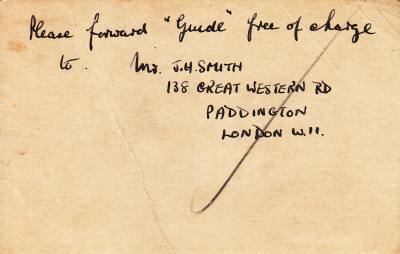 Please forward "Guide" free of charge
to. Mr. J.H. SMITH
138 GREAT WESTERN RD
PADDINGTON
LONDON W.11.